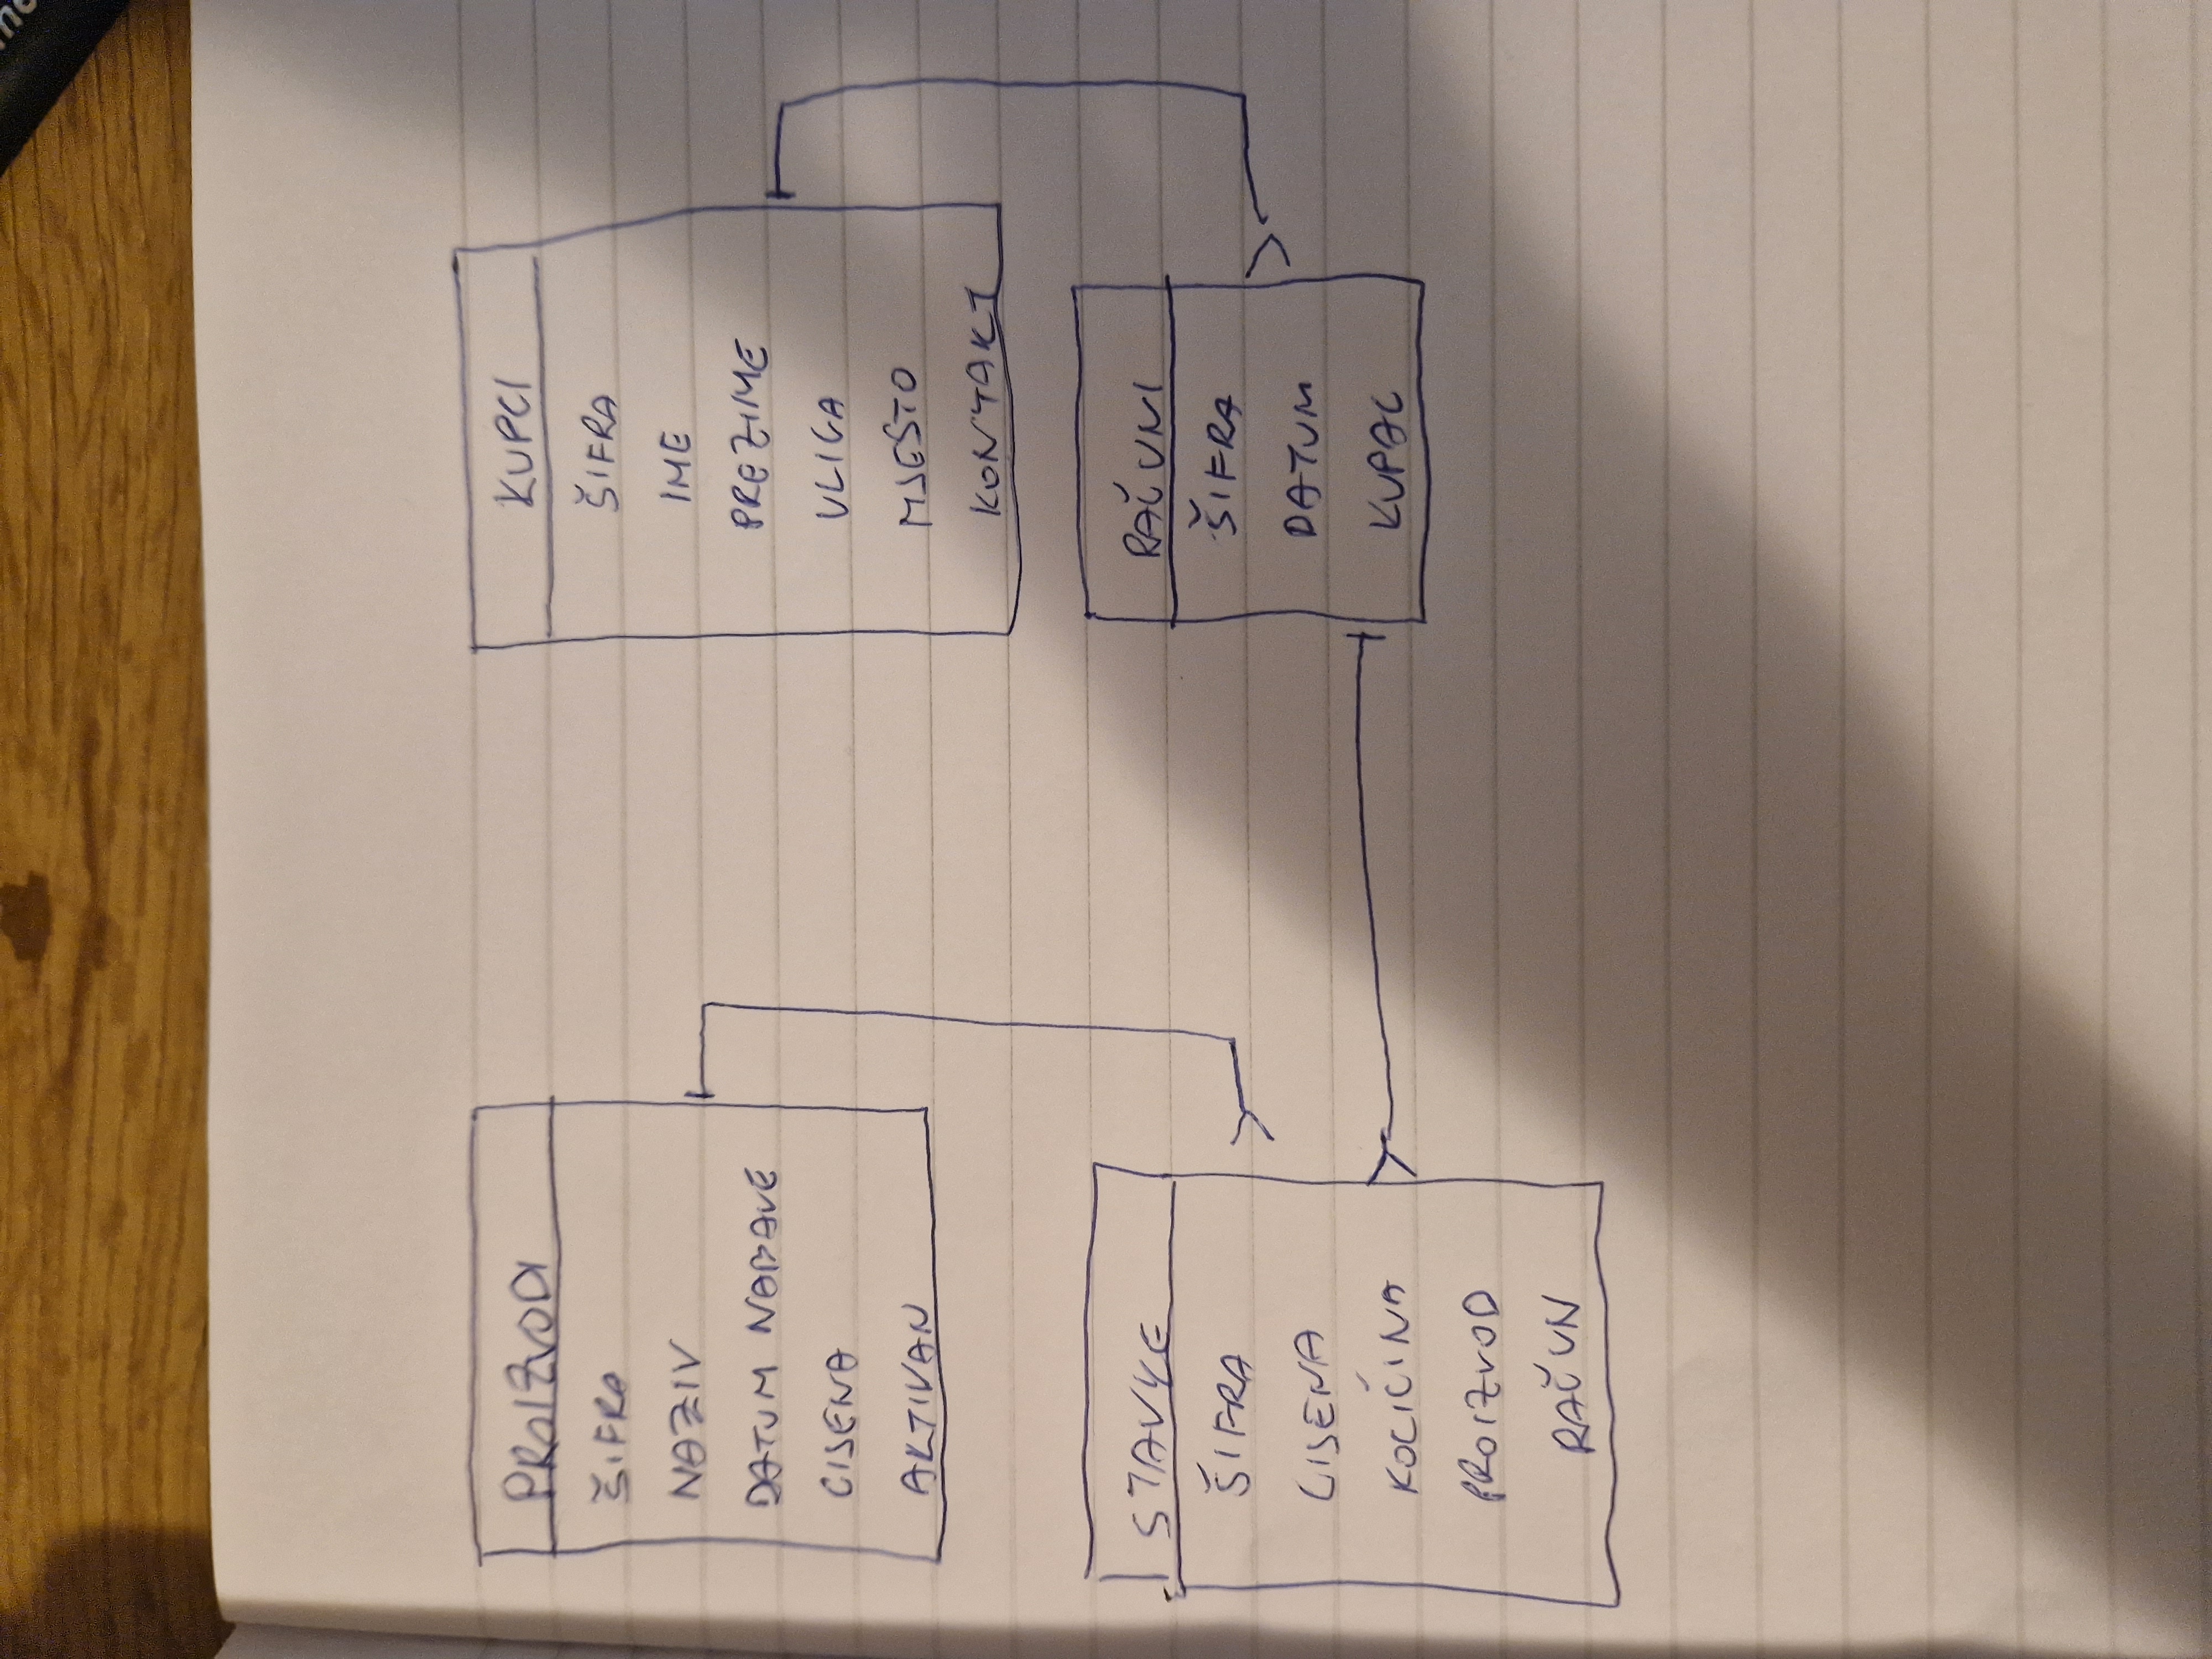 PROIZVODI
ŠIFRA
NAZIV
DATUM NABAVE
CIJENA
AKTIVAN
KUPCI
ŠIFRA
IME
PREZIME
ULICA
MJESTO
KONTAKT
STAVKE
ŠIFRA
CIJENA
KOLIČINA
PROIZVOD
RAČUN
RAČUNI
ŠIFRA
DATUM
KUPAC